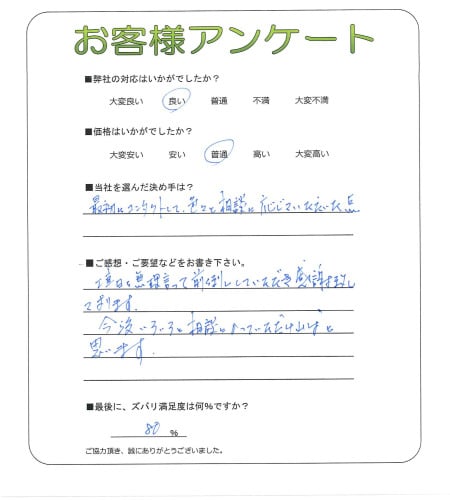 お客様アンケート
■弊社の対応はいかがでしたか?
大変良い 良い 普通 不満 大変不満
■価格はいかがでしたか?
大変安い 安い 普通 高い 大変高い
■当社を選んだ決め手は?
最初にコンタクトして、色々と相談に応じていただいた点
■ご感想・ご要望などをお書き下さい。
工事日も無理言って前倒ししていただき感謝致し
ております。
今後いろいろと相談にのっていただければと
思います。
■最後に、ズバリ満足度は何%ですか?
80 %
ご協力頂き、誠にありがとうございました。